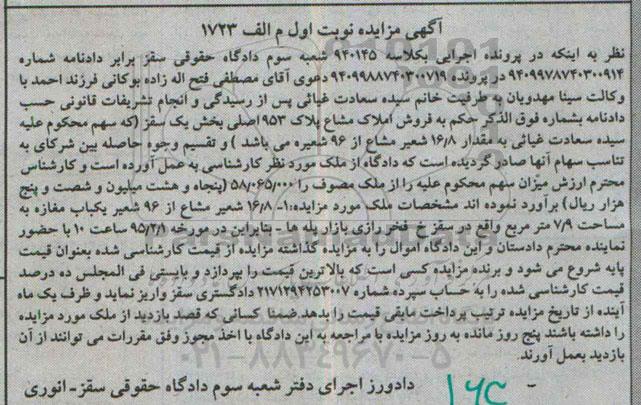 آگهی مزایده نوبت اول م الف ۱۷۲۳
نظر به اینکه در پرونده اجرایی بکلاسه ۹۴۰۱۴۵ شعبه سوم دادگاه حقوقی سقز برابر دادنامه شماره
۹۴۰۹۹۷۸۷۴۰۳۰۰۹۱۴ در پرونده ۹۴۰۹۹۸۸۷۴۰۳۰۰۷۱۹ دعوی آقای مصطفی فتح اله زاده بوکانی فرزند احمد با
وکالت سینا مهدویان به طرفیت خانم سیده سعادت غیاثی پس از رسیدگی و انجام تشریفات قانونی حسب
دادنامه بشماره فوق الذکر حکم به فروش املاک مشاع پلاک ۹۵۳ اصلی بخش یک سقز (که سهم محکوم علیه
سیده سعادت غیاثی به مقدار ۱۶/۸ شعیر مشاع از ۹۶ شعیره می باشد ) و تقسیم وجوه حاصله بین شرکای به
تناسب سهام آنها صادر گردیده است که دادگاه از ملک مورد نظر کارشناسی به عمل آورده است و کارشناس
محترم ارزش میزان سهم محکوم علیه را از ملک مصوف را ۵۸/۰۶۵/۰۰۰ (پنجاه و هشت میلیون و شصت و پنج
هزار ریال) برآورد نموده اند مشخصات ملک مورد مزایده:۱- ۱۶/۸ شعیر مشاع از ۹۶ شعیر یکباب مغازه به
مساحت ۷/۹ متر مربع واقع در سقز خ فخررازی بازار پله ها - بنابراین در مورخه ۹۵/۲/۱ ساعت ۱۰ با حضور
نماینده محترم دادستان و این دادگاه اموال را به مزایده گذاشته مزایده از قیمت کارشناسی شده بعنوان قیمت
پایه شروع می شود و برنده مزایده کسی است که بالاترین قیمت را بپردازد و بایستی فی المجلس ده درصد
قیمت کارشناسی شده را به حساب سپرده شماره ۲۱۷۱۲۹۴۲۵۳۰۰۷ دادگستری سقز واریز نماید و ظرف یک ماه
آینده از تاریخ مزایده ترتیب پرداخت مابقی قیمت را بدهد ضمنا کسانی که قصد بازدید از ملک مورد مزایده
را داشته باشند پنج روز مانده به روز مزایده با مراجعه به این دادگاه با اخذ مجوز وفق مقررات می توانند از آن
بازدید بعمل آورند.
۰۲۱-۸۸۳۴۹۶۷۰-۵
دادورز اجرای دفتر شعبه سوم دادگاه حقوقی سقز - انوری